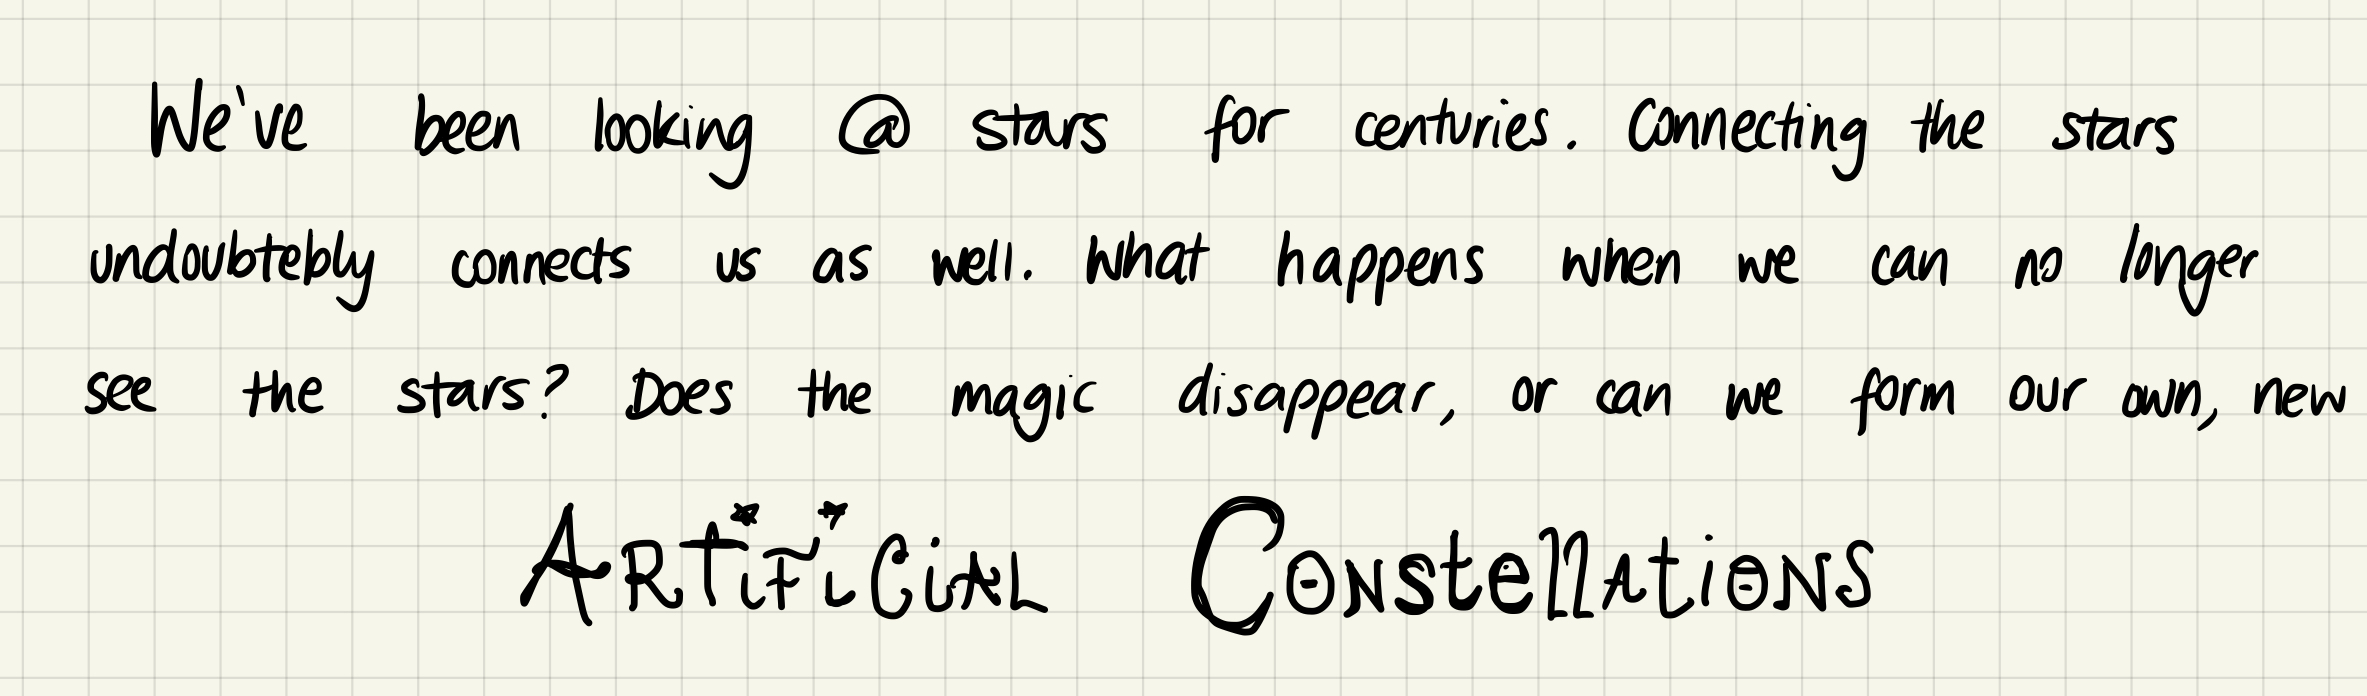 We've been looking @ stars for centuries. Connecting the stars
undoubtebly connects us as well. What happens when we can no longer
see the stars? Does the magic disappear, or can we form our own, new
ARtiFiCiAL ConstellAtions